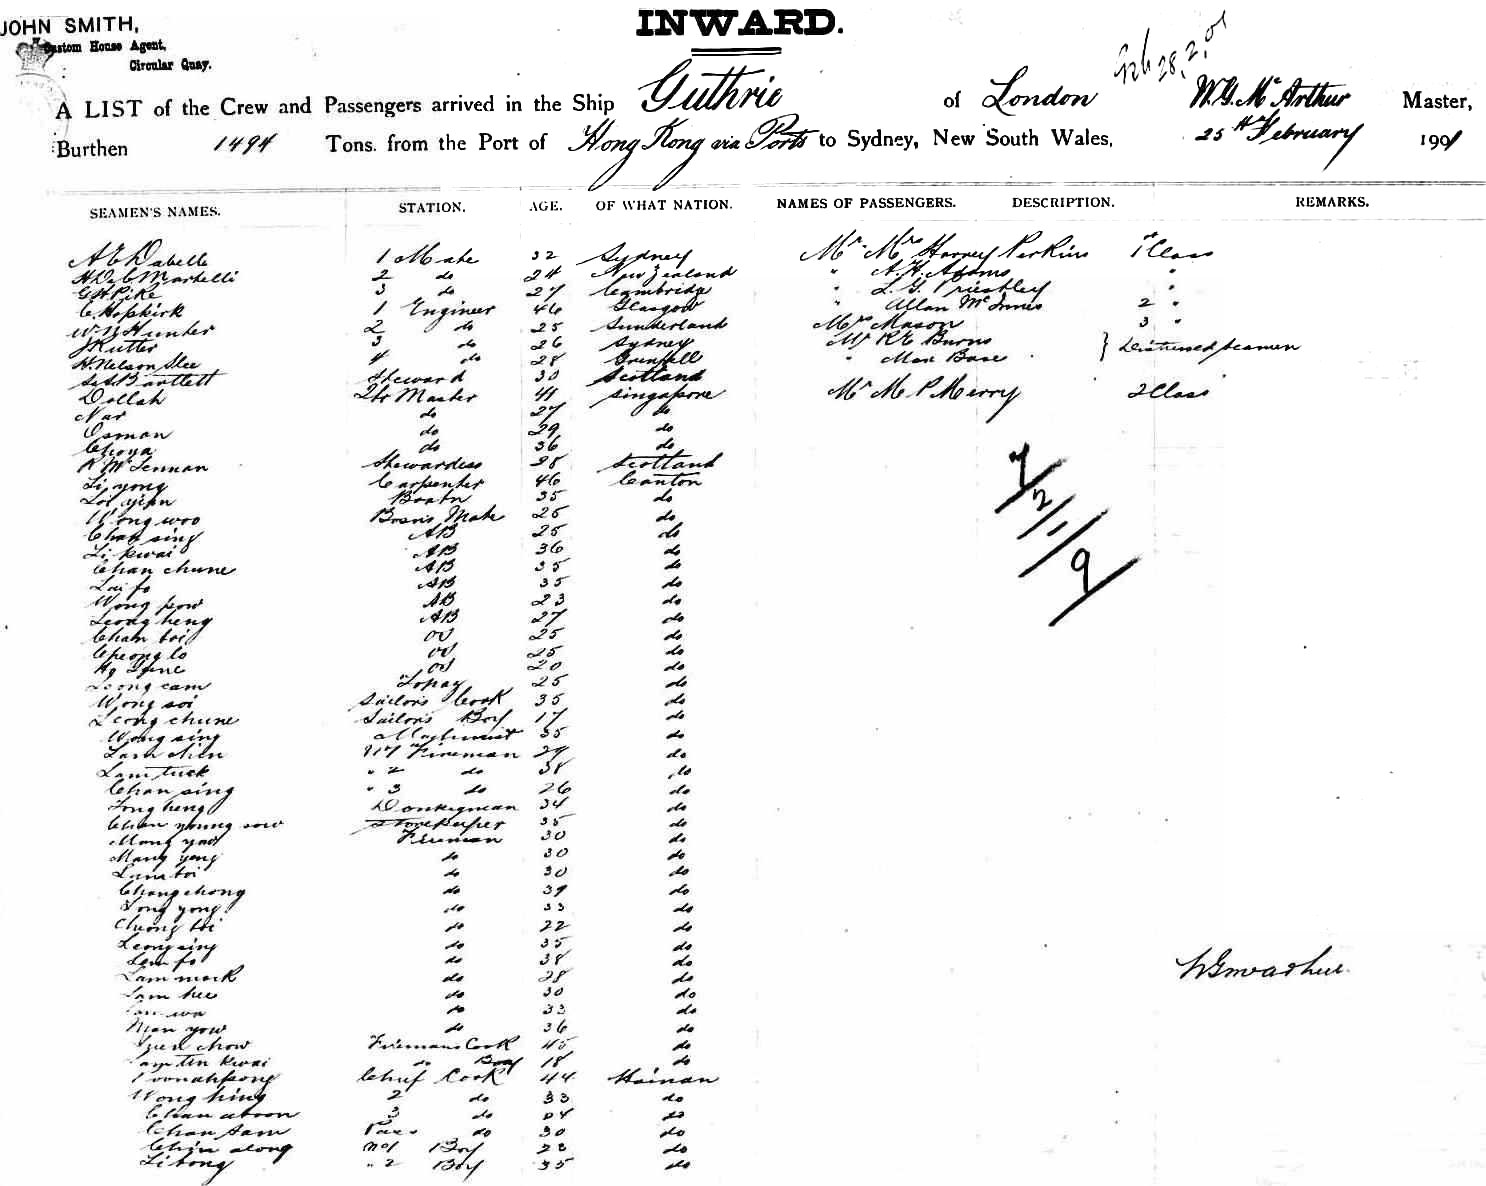 JOHN SMITH,
Custom House Agent,
Circular Quay.
INWARD.
Feb 28.2.01
A LIST of the Crew and Passengers arrived in the Ship Guthrie of London W.G. McArthur Master,
Burthen 1494 Tons. from the Port of Hong Kong via Ports to Sydney, New South Wales, 25th February 1901
SEAMEN'S NAMES. STATION. AGE. OF WHAT NATION. NAMES OF PASSENGERS. DESCRIPTION. REMARKS.
1 Mate 32 Sydney Mr Mrs Harvey Perkins 1st Class
2 do 24 New Zealand " A.H. Adams "
G H Pike 3 do 27 Cambridge " L.G. Priestley "
C. Hopkirk 1 Engineer 46 Glasgow " Allan McInnes 2 "
Hunter 2 do 25 Sunderland Mrs Mason 3 "
J Rutter 3 do 26 Sydney Mr R E Burns } Distressed Seamen
H. Nelson 4 do 28 " Max Base
Bartlett Steward 30 Scotland
Dollah Qtr Master 41 Singapore Mr M P Merry 2 Class
Nar do 27 do
Osman do 29 do
do 36 do
McLennan Stewardess 28 Scotland
Li yong Carpenter 46 Canton
Boatn 35 do
Wong woo Bosn's Mate 25 do
Chan sing AB 25 do
Li kwai AB 36 do
Chan chune AB 35 do
Lai fo AB 35 do
Wong pow AB 23 do
Leong heng AB 27 do
Cham toi OS 25 do
Cheong lo OS 25 do
OS 20 do
Leong cam Topay 25 do
Wong soi Sailors Cook 35 do
Leong chune Sailors Boy 17 do
Wong sing Machinist 35 do
Lam chen No 1 Fireman 29 do
Lam tuck " 2 do 38 do
Chan sing " 3 do 26 do
Tong heng Donkeyman 34 do
Chan young sow Storekeeper 35 do
Mong yao Fireman 30 do
Mang yong do 30 do
Lam toi do 30 do
Chong chong do 39 do
Tong yong do 33 do
Chuong toi do 22 do
Leong sing do 35 do
Lam fo do 38 do
Lam mock do 28 do
Lam hee do 30 do
do 33 do
Man yow do 36 do
chow Firemans Cook 45 do
kwai do Boy 18 do
Chief Cook 44 Hainan
Wong hing 2 do 33 do
Chan aboon 3 do 24 do
Chan Sam do 30 do
Chin along No 1 Boy 23 do
Li tong " 2 Boy 35 do
7/2/1/9
WGMcArthur